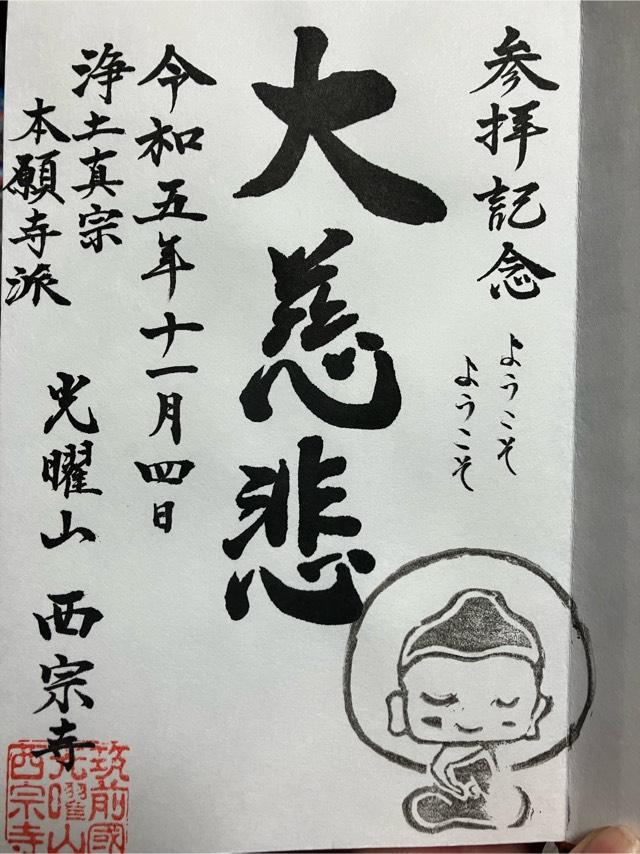 参拝記念
ようこそ
ようこそ
大慈悲
令和五年十一月四日
浄土真宗
本願寺派
光曜山 西宗寺
筑前國
光曜山
西宗寺